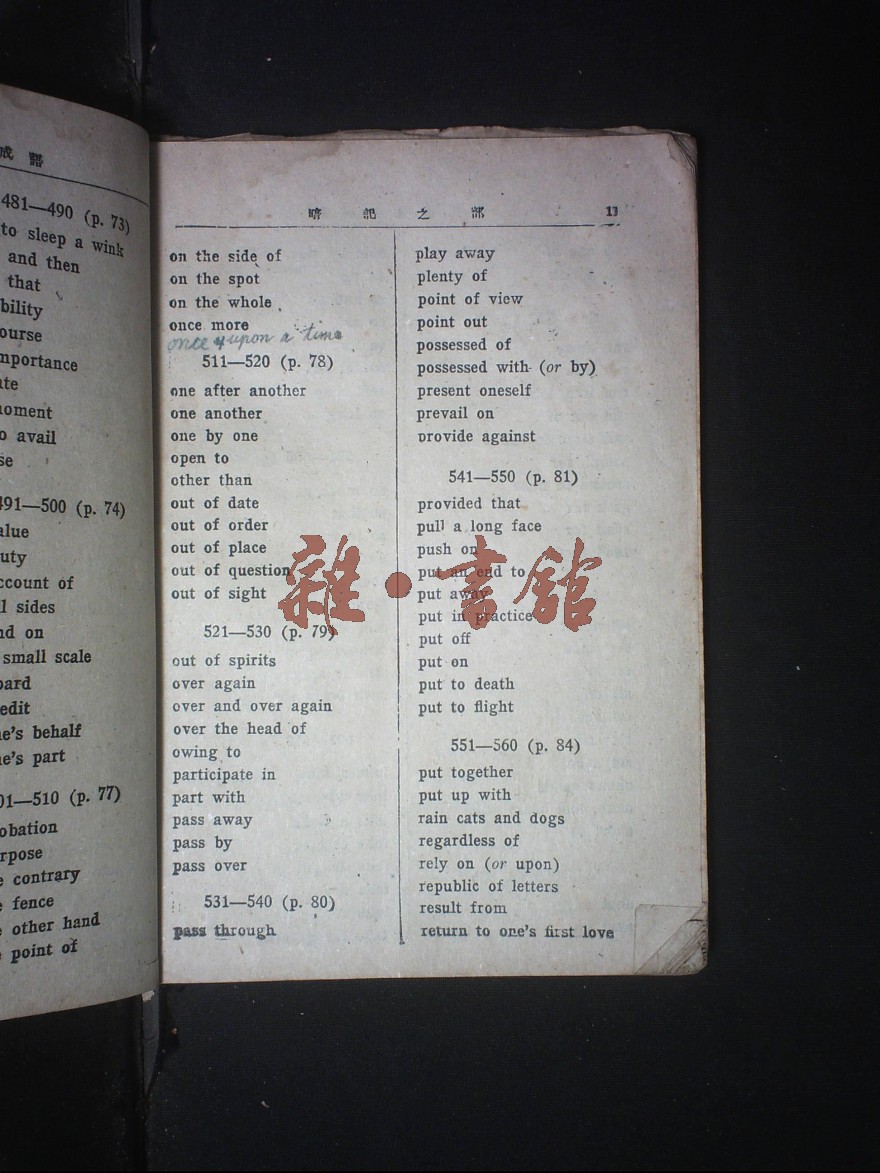 成語
481—490 (p. 73)
to sleep a wink
and then
that
importance
avail
491—500 (p. 74)
account of
sides
on
small scale
behalf
part
—510 (p. 77)
contrary
fence
other hand
point of
暗記之部
on the side of
on the spot
on the whole
once more
once upon a time
511—520 (p. 78)
one after another
one another
one by one
open to
other than
out of date
out of order
out of place
out of question
out of sight
521—530 (p. 79)
out of spirits
over again
over and over again
over the head of
owing to
participate in
part with
pass away
pass by
pass over
531—540 (p. 80)
pass through
play away
plenty of
point of view
point out
possessed of
possessed with (or by)
present oneself
prevail on
provide against
541—550 (p. 81)
provided that
pull a long face
push on
put an end to
put away
put in practice
put off
put on
put to death
put to flight
551—560 (p. 84)
put together
put up with
rain cats and dogs
regardless of
rely on (or upon)
republic of letters
result from
return to one's first love
雜·書館